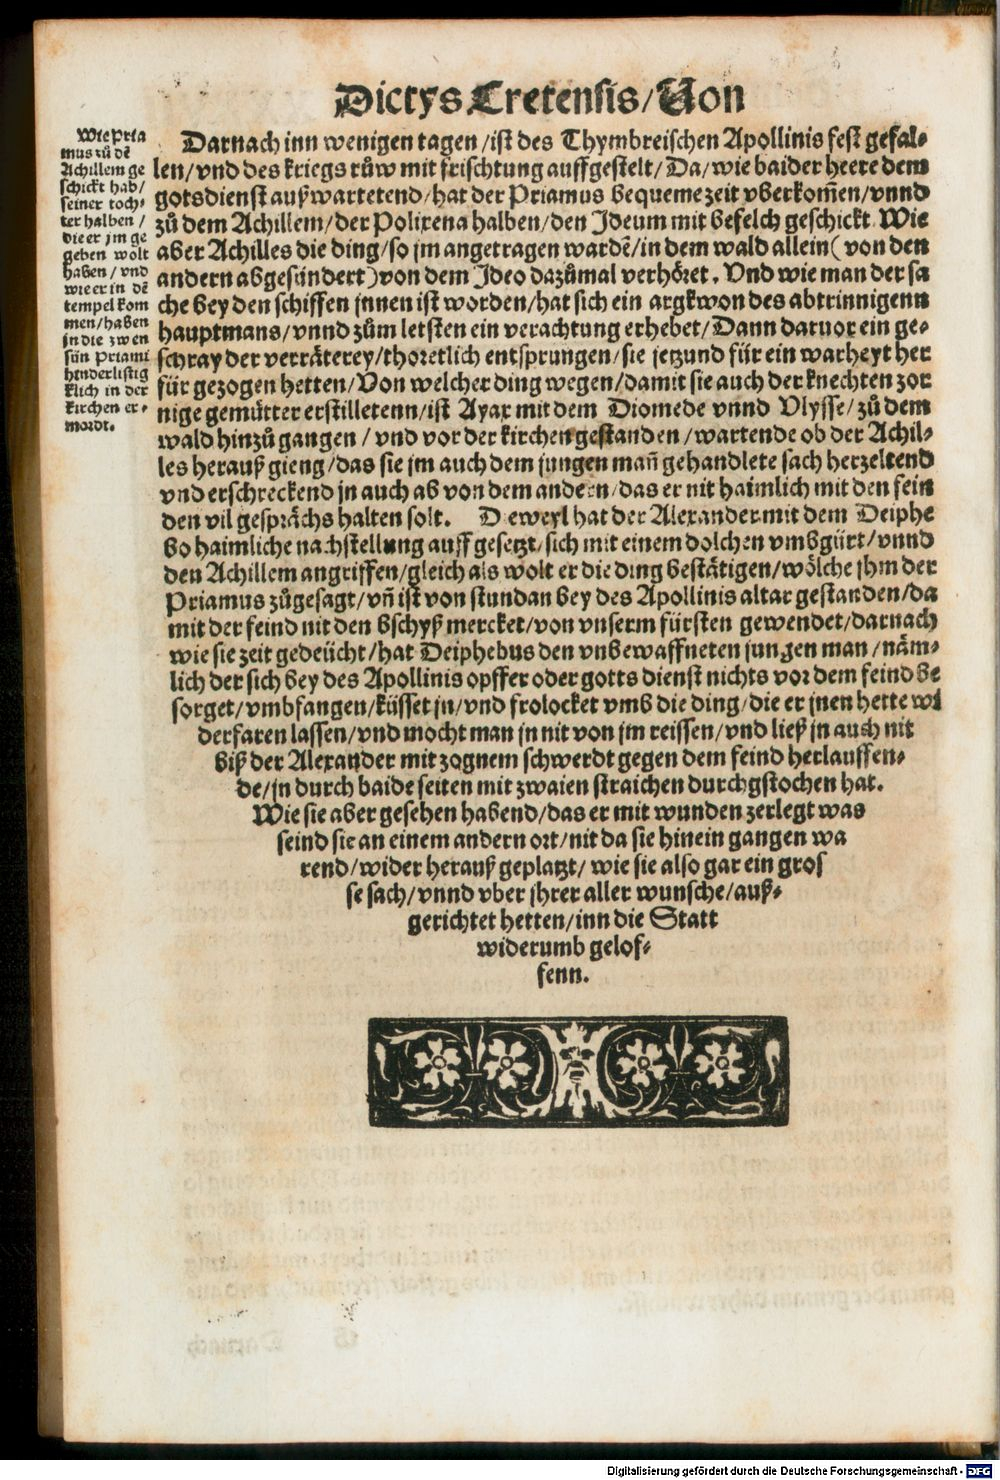 Dictys Cretensis/Von
Wie Pria
mus zů dē
Achillem ge
schickt hab/
seiner toch-
ter halben /
die er jm ge
geben wolt
haben / vnd
wie er in dē
tempel kom
men/haben
jn die zwen
sün Priami
hinderlistig
klich in der
kirchen er-
mordt.
Darnach inn wenigen tagen /ist des Thymbreischen Apollinis fest gefal-
len/vnd des kriegs růw mit frischtung auffgestelt/Da/wie baider heere dem
gotsdienst außwartetend/hat der Priamus bequeme zeit vberkom̄en/vnnd
zů dem Achillem/der Polixena halben/den Jdeum mit befelch geschickt. Wie
aber Achilles die ding/so jm angetragen wardē/in dem wald allein( von den
andern abgesündert)von dem Jdeo dazůmal verhöret. Vnd wie man der sa
che bey den schiffen jnnen ist worden/hat sich ein argkwon des abtrinnigenn
hauptmans/vnnd zům letsten ein verachtung erhebet/Dann daruor ein ge-
schray der verräterey/thoretlich entsprungen/sie jetzund für ein warheyt her
für gezogen hetten/Von welcher ding wegen/damit sie auch der knechten zor
nige gemütter erstilletenn/ist Ayax mit dem Diomede vnnd Vlysse/zů dem
wald hinzů gangen / vnd vor der kirchen gestanden /wartende ob der Achil-
les herauß gieng/das sie jm auch dem jungen man̄ gehandlete sach herzeltend
vnd erschreckend jn auch ab von dem andern/das er nit haimlich mit den fein
den vil gesprächs halten solt. Deweyl hat der Alexander mit dem Deiphe
bo haimliche nachstellung auffgesetzt/sich mit einem dolchen vmbgürt/vnnd
den Achillem angriffen/gleich als wolt er die ding bestätigen/wölche jhm der
Priamus zůgesagt/vn̄ ist von stundan bey des Apollinis altar gestanden/da
mit der feind nit den bschyß mercket/von vnserm fürsten gewendet/darnach
wie sie zeit gedeücht/hat Deiphebus den vnbewaffneten jungen man /näm-
lich der sich bey des Apollinis opffer oder gotts dienst nichts vor dem feind be
sorget/vmbfangen/küsset jn/vnd frolocket vmb die ding/die er jnen hette wi
derfaren lassen/vnd mocht man jn nit von jm reissen/vnd ließ jn auch nit
biß der Alexander mit zognem schwerdt gegen dem feind herlauffen-
de/jn durch baide seiten mit zwaien straichen durchgstochen hat.
Wie sie aber gesehen habend/das er mit wunden zerlegt was
seind sie an einem andern ort/nit da sie hinein gangen wa
rend/wider herauß geplatzt/ wie sie also gar ein gros
se sach/vnnd vber jhrer aller wunsche/auß-
gerichtet hetten/inn die Statt
widerumb gelof-
fenn.
Digitalisierung gefördert durch die Deutsche Forschungsgemeinschaft - DFG